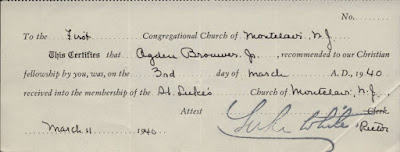 No.
To the First Congregational Church of Montclair, N.J.
This Certifies that Ogden Brouwer, Jr., recommended to our Christian
fellowship by you, was, on the 3rd day of March A.D., 1940
received into the membership of the St. Luke's Church of Montclair, N.J.
Attest Luke White, Clerk
March 11 1940 Rector